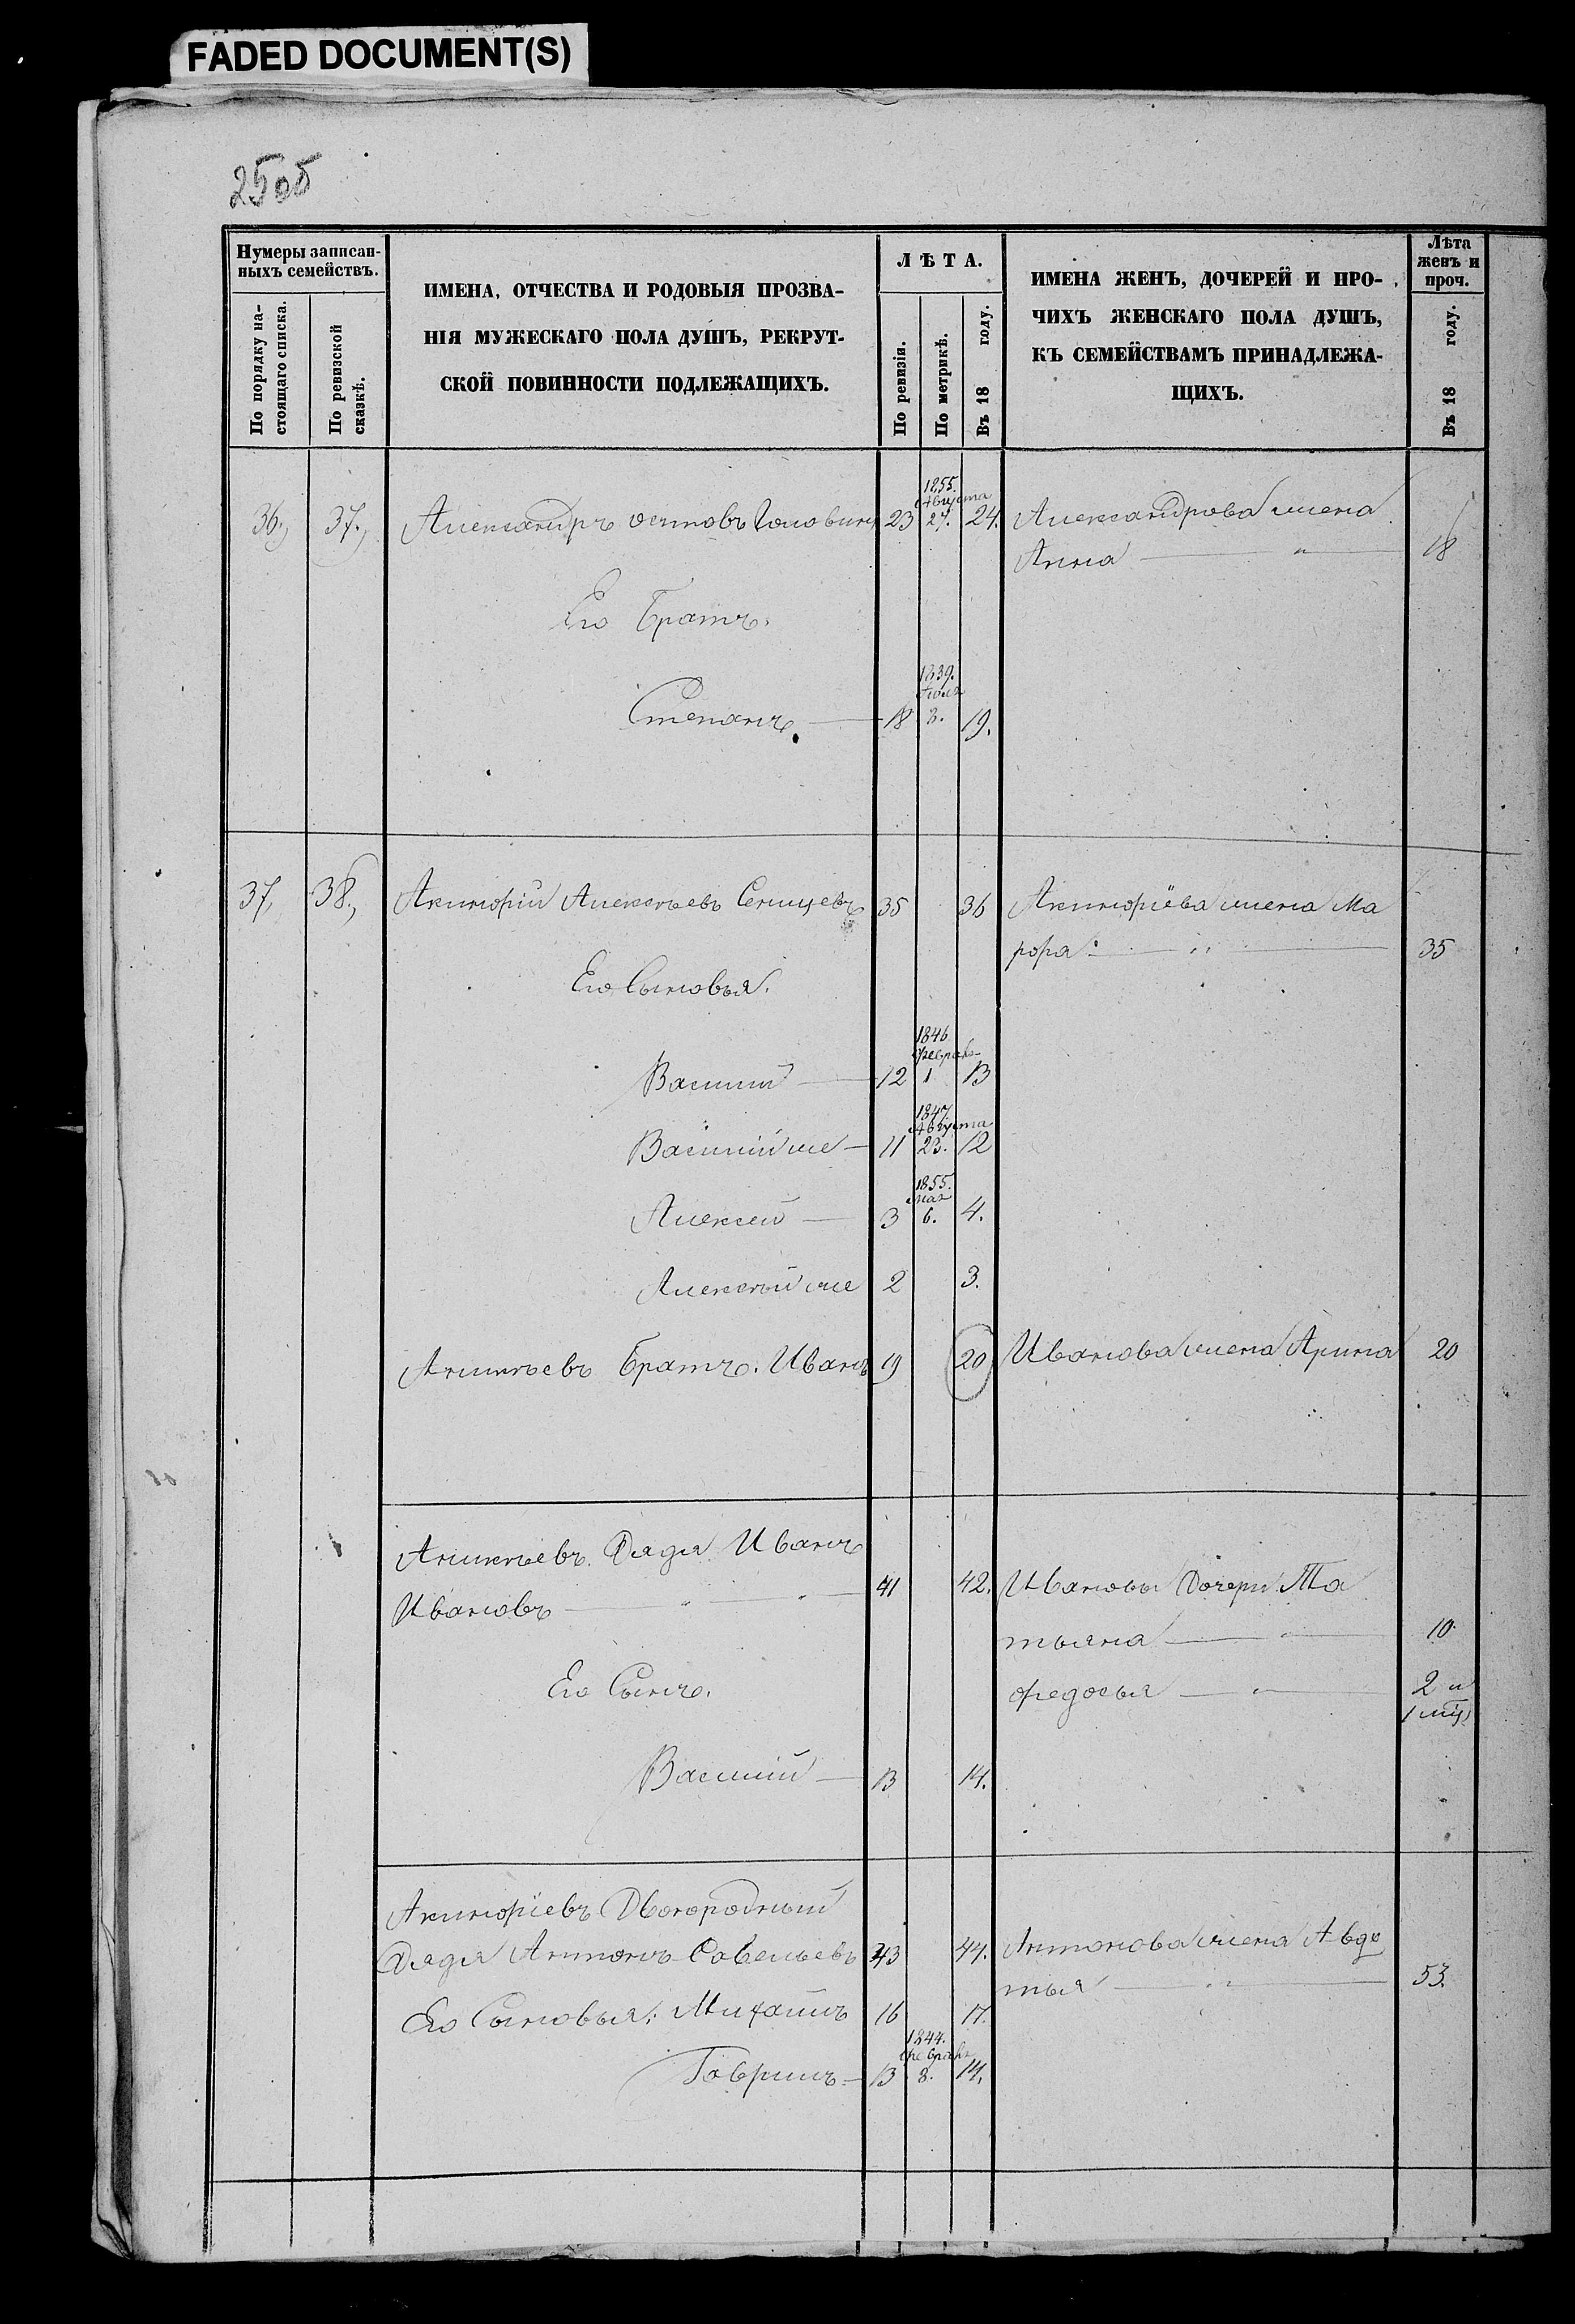 FADED DOCUMENT(S)
25об
Нумеры записан-
ныхъ семействъ.
По порядку на-
стоящаго списка.
По ревизской
сказкѣ.
ИМЕНА, ОТЧЕСТВА И РОДОВЫЯ ПРОЗВА-
НІЯ МУЖЕСКАГО ПОЛА ДУШЪ, РЕКРУТ-
СКОЙ ПОВИННОСТИ ПОДЛЕЖАЩИХЪ.
ЛѢТА.
По ревизіи.
По метрикѣ.
Въ 18 году.
ИМЕНА ЖЕНЪ, ДОЧЕРЕЙ И ПРО-
ЧИХЪ ЖЕНСКАГО ПОЛА ДУШЪ,
КЪ СЕМЕЙСТВАМЪ ПРИНАДЛЕЖА-
ЩИХЪ.
Лѣта
женъ и
проч.
Въ 18 году.
1855.
Августа
36, 37., Александръ 23 27. 24. Александрова жена
Анна 18
Его Братъ.
1839.
Степанъ 18 8. 19.
37, 38., Алексѣевъ 35 36 жена Ма
рфа 35
Его Сыновья.
1846
февраля
Василий 12 1 13
1847
Августа
Василий же 11 23. 12
1855.
мая
Алексей 3 6. 4.
Алексѣй же 2 3.
Братъ. Иванъ 19 20 Иванова жена Арина 20
Дядя Иванъ
Ивановъ 41 42. Ивановы Дочери Та
тьяна 10
Федосья 2 и
Его Сынъ.
Василий 13 14.
Двоюродный
Дядя Антонъ Савельевъ 43 44. Антонова жена Авдо
тья 53.
Его Сыновья: Михаилъ 16 17.
1844.
февраля
Гаврилъ 13 8. 14.